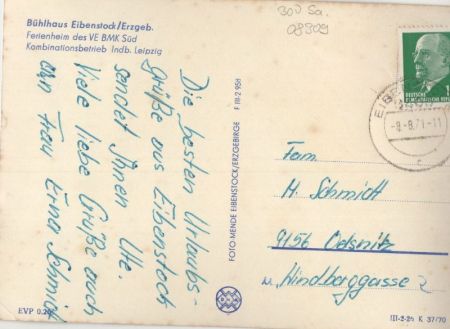 Bühlhaus Eibenstock/Erzgeb.
Ferienheim des VE BMK Süd
Kombinationsbetrieb Indb. Leipzig
300 Sa.
08309
DEUTSCHE
DEMOKRATISCHE REPUBLIK
-8.-8.71.-11
Die besten Urlaubs-
grüße aus Eibenstock
sendet Ihnen Ute.
Viele liebe Grüße auch
an Frau Erna Schmidt
F III-2 95H
FOTO-MENDE EIBENSTOCK/ERZGEBIRGE
Fam.
H. Schmidt
9156 Oelsnitz
Windberggasse 2
EVP 0.20
III-2-26 K 37/70